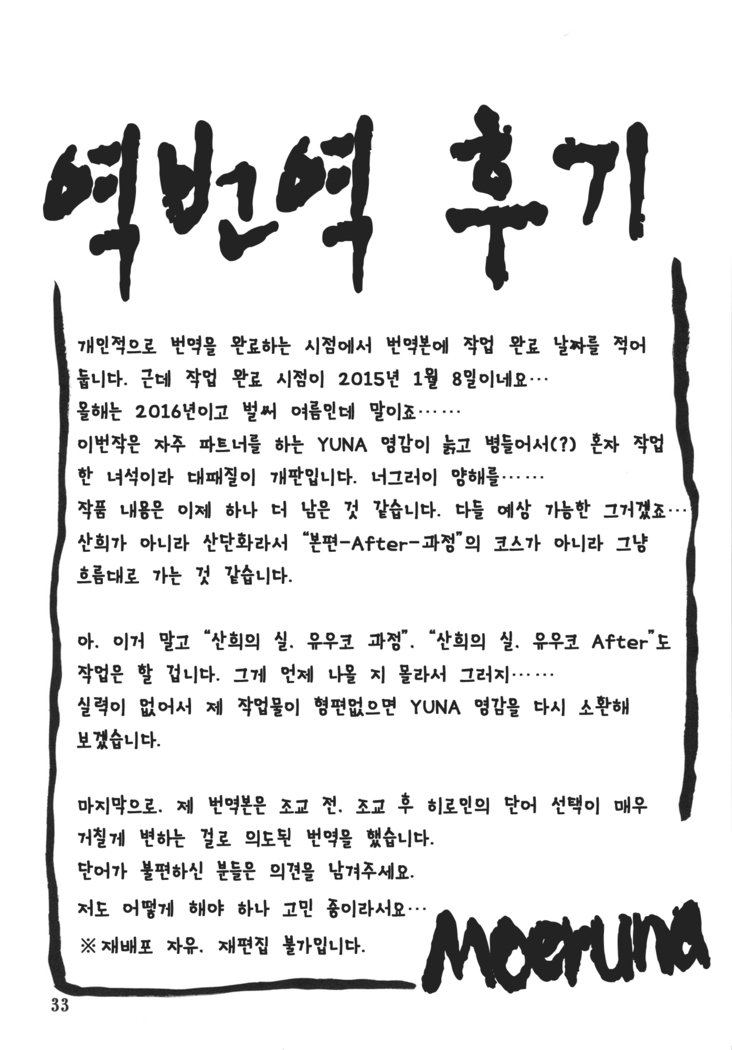 역번역 후기
개인적으로 번역을 완료하는 시점에서 번역본에 작업 완료 날짜를 적어
둡니다. 근데 작업 완료 시점이 2015년 1월 8일이네요…
올해는 2016년이고 벌써 여름인데 말이죠……
이번작은 자주 파트너를 하는 YUNA 영감이 늙고 병들어서(?) 혼자 작업
한 녀석이라 대패질이 개판입니다. 너그러이 양해를……
작품 내용은 이제 하나 더 남은 것 같습니다. 다들 예상 가능한 그거겠죠…
산희가 아니라 산단화라서 “본편-After-과정”의 코스가 아니라 그냥
흐름대로 가는 것 같습니다.
아, 이거 말고 “산희의 실, 유우코 과정”, “산희의 실, 유우코 After”도
작업은 할 겁니다. 그게 언제 나올 지 몰라서 그러지……
실력이 없어서 제 작업물이 형편없으면 YUNA 영감을 다시 소환해
보겠습니다.
마지막으로, 제 번역본은 조교 전, 조교 후 히로인의 단어 선택이 매우
거칠게 변하는 걸로 의도된 번역을 했습니다.
단어가 불편하신 분들은 의견을 남겨주세요.
저도 어떻게 해야 하나 고민 중이라서요…
※재배포 자유, 재편집 불가입니다.
Moeruna
33